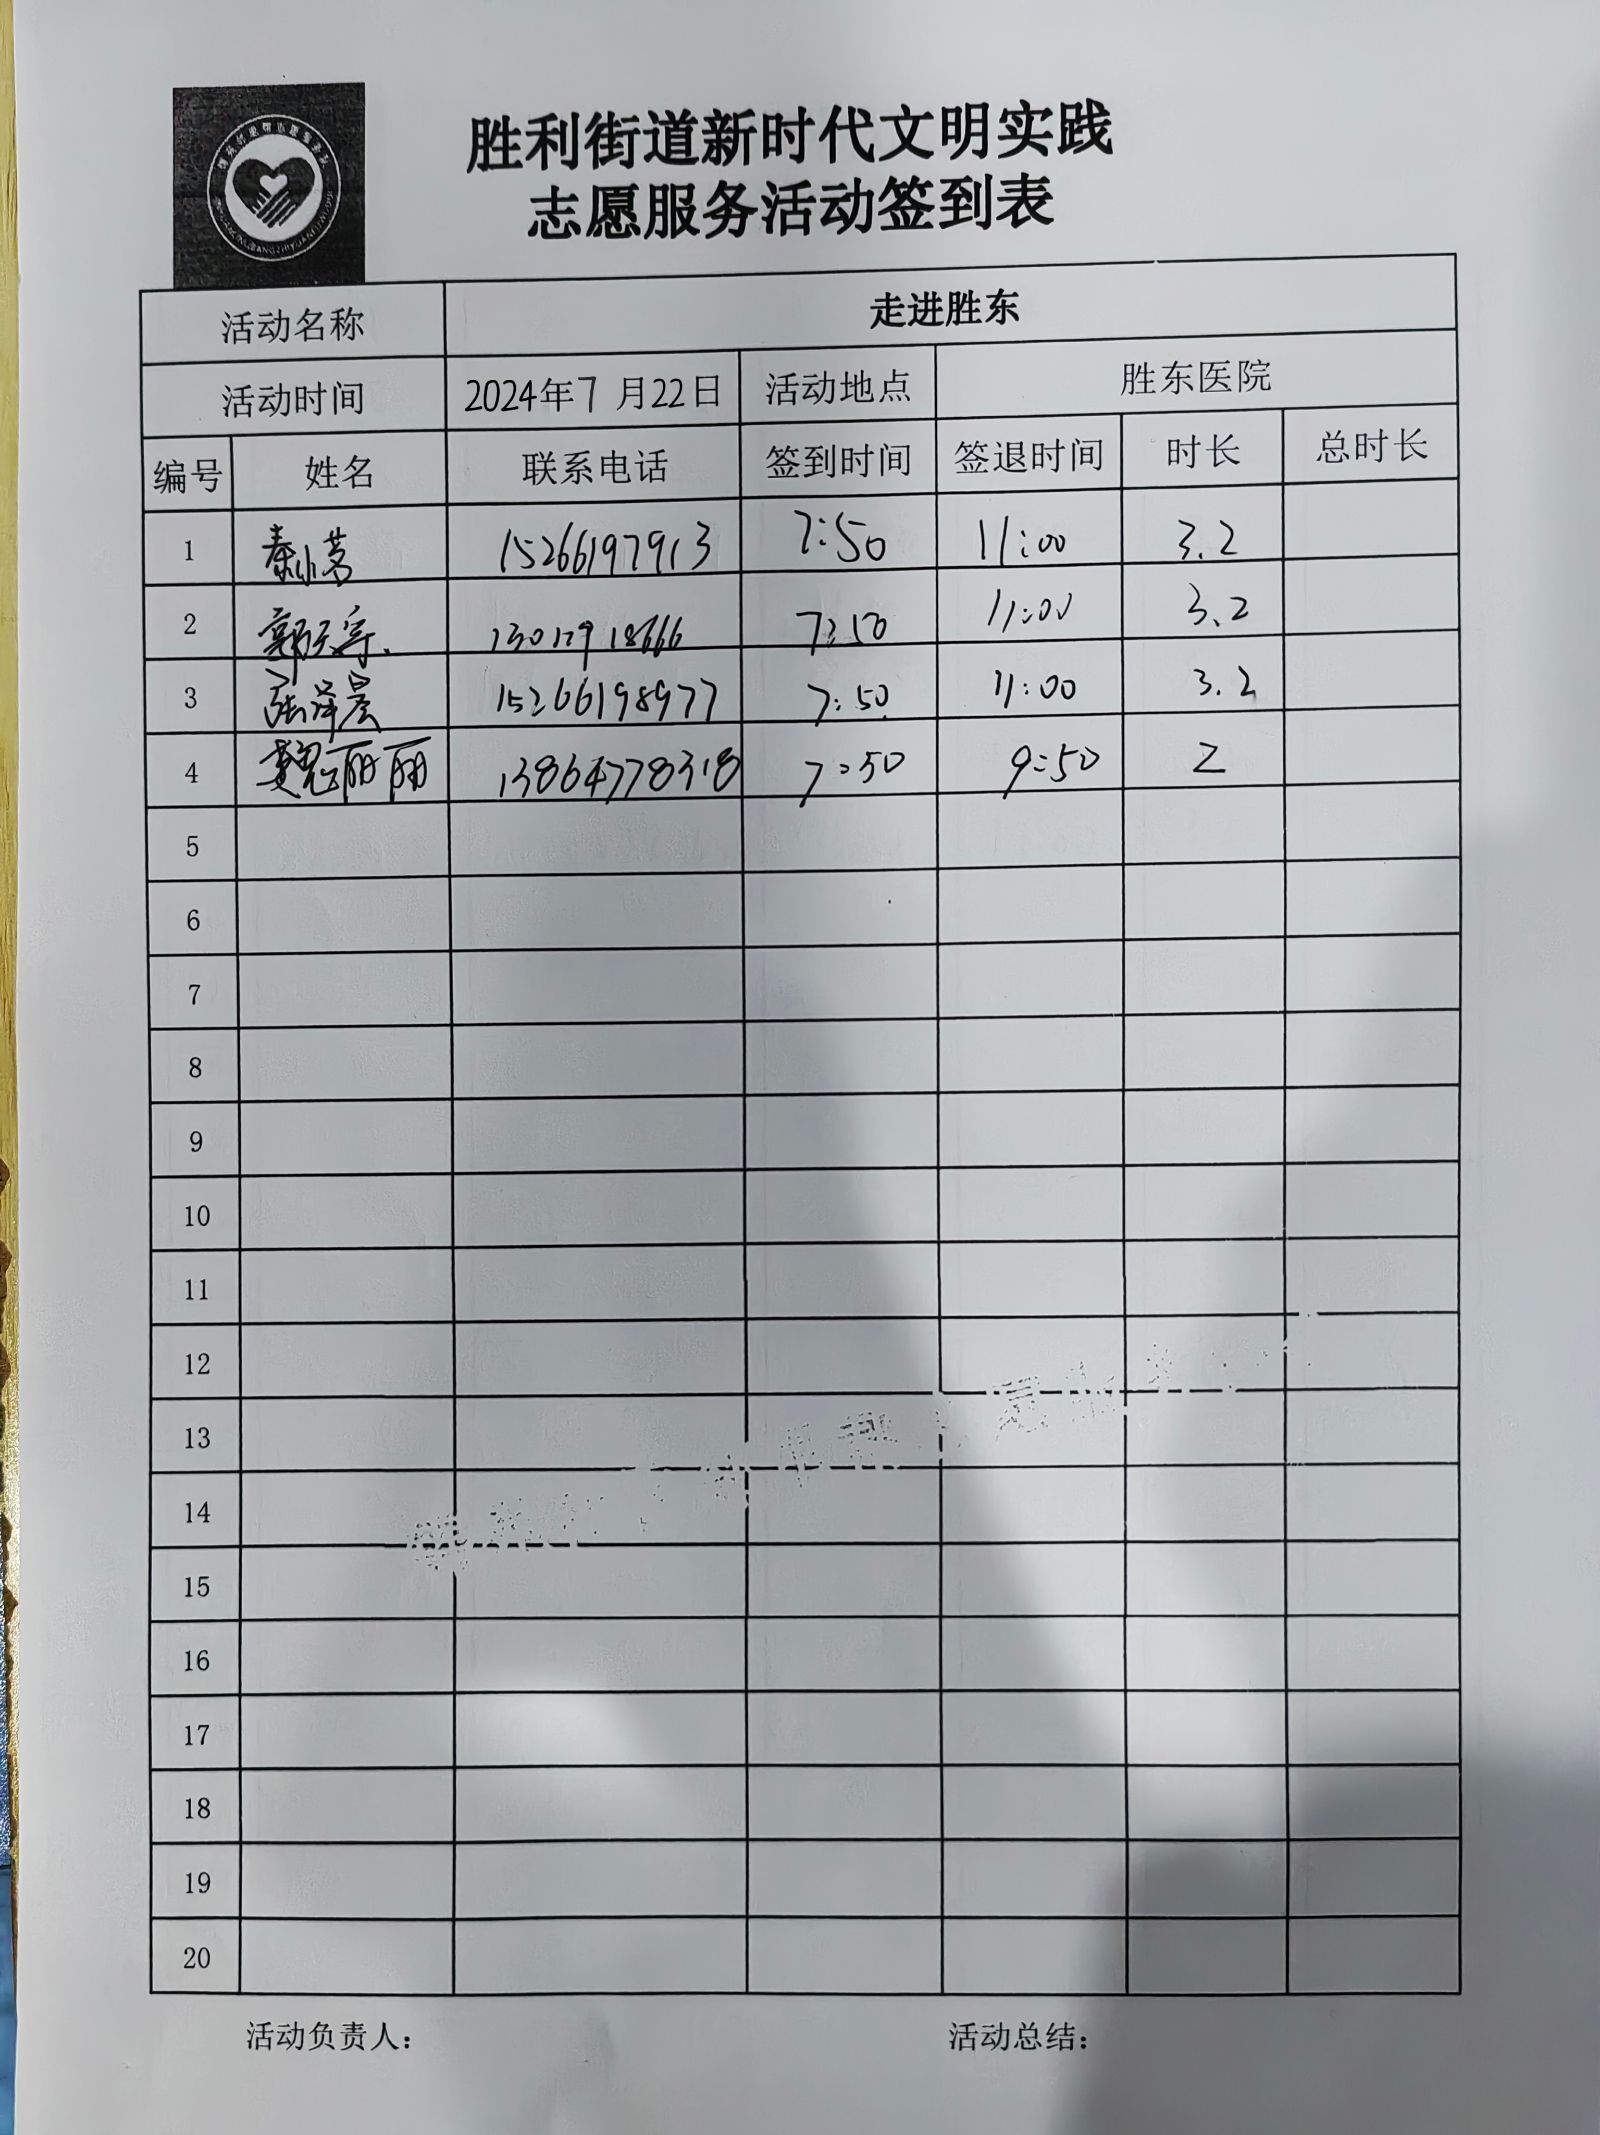 胜利街道新时代文明实践
志愿服务活动签到表
活动名称 走进胜东
活动时间 2024年7月22日 活动地点 胜东医院
编号 姓名 联系电话 签到时间 签退时间 时长 总时长
1 秦小茗 15266197913 7:50 11:00 3.2
2 郭天宇 7:50 11:00 3.2
3 张泽晨 15266198977 7:50 11:00 3.2
4 魏丽丽 13864778318 7:50 9:50 2
5
6
7
8
9
10
11
12
13
14
15
16
17
18
19
20
活动负责人: 活动总结: